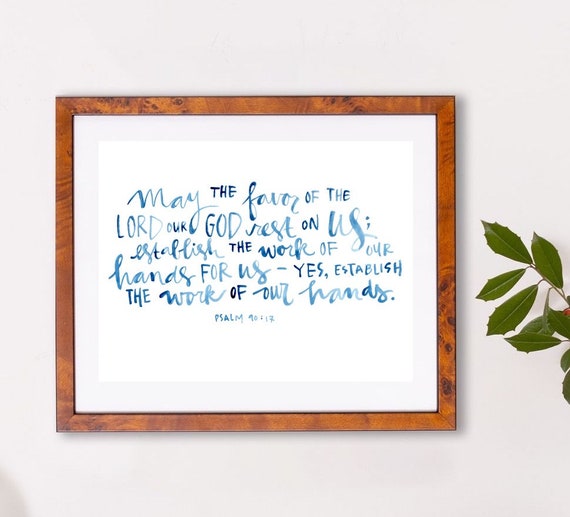 May THE favor OF THE
LORD OUR GOD rest ON US;
establish THE work OF OUR
hands FOR us – YES, ESTABLISH
THE work OF our hands.
PSALM 90:17